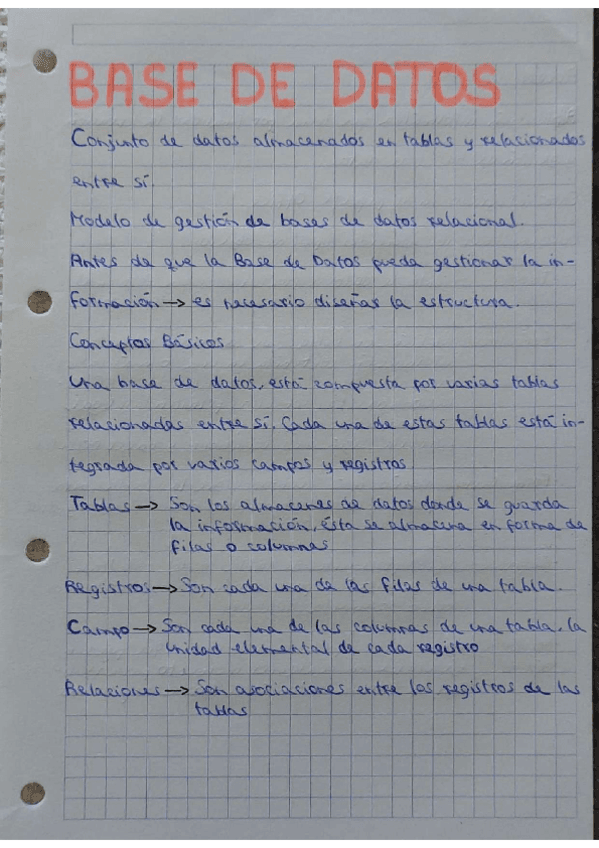 BASE DE DATOS
Conjunto de datos almacenados en tablas y relacionados
entre sí.
Modelo de gestión de bases de datos relacional.
Antes de que la Base de Datos pueda gestionar la in-
formación → es necesario diseñar la estructura.
Conceptos Básicos
Una base de datos, está compuesta por varias tablas
relacionadas entre sí. Cada una de estas tablas está in-
tegrada por varios campos y registros
Tablas → Son los almacenes de datos donde se guarda
la información, ésta se almacena en forma de
filas o columnas
Registros → Son cada una de las filas de una tabla.
Campo → Son cada una de las columnas de una tabla, la
unidad elemental de cada registro
Relaciones → Son asociaciones entre los registros de las
tablas